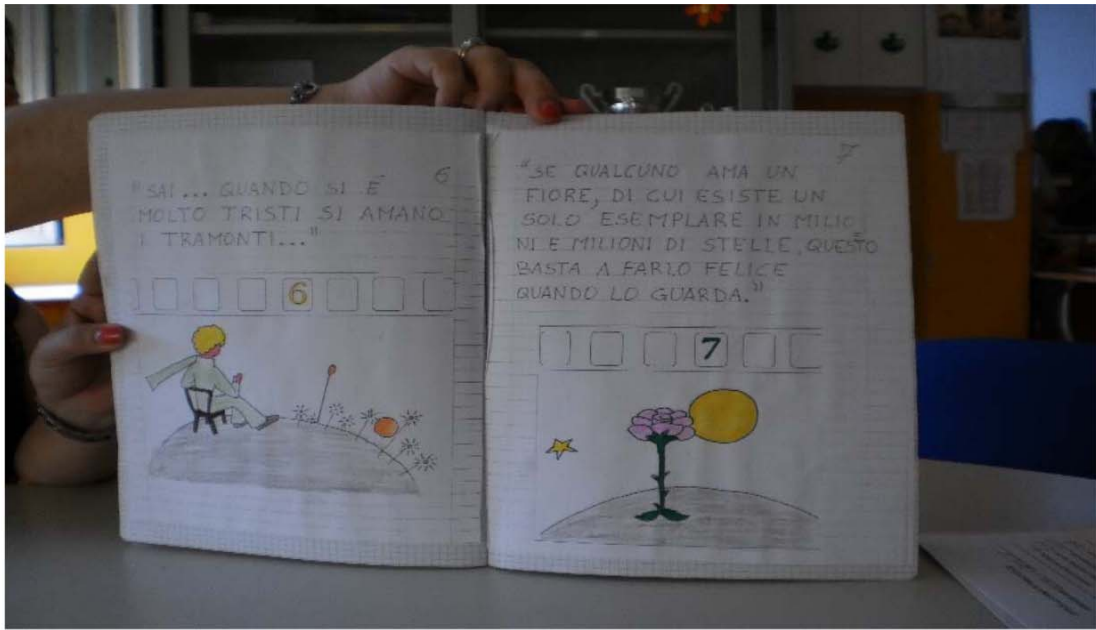 6
"SAI... QUANDO SI È
MOLTO TRISTI SI AMANO
I TRAMONTI..."
6
7
"SE QUALCUNO AMA UN
FIORE, DI CUI ESISTE UN
SOLO ESEMPLARE IN MILIO
NI E MILIONI DI STELLE, QUESTO
BASTA A FARLO FELICE
QUANDO LO GUARDA."
7